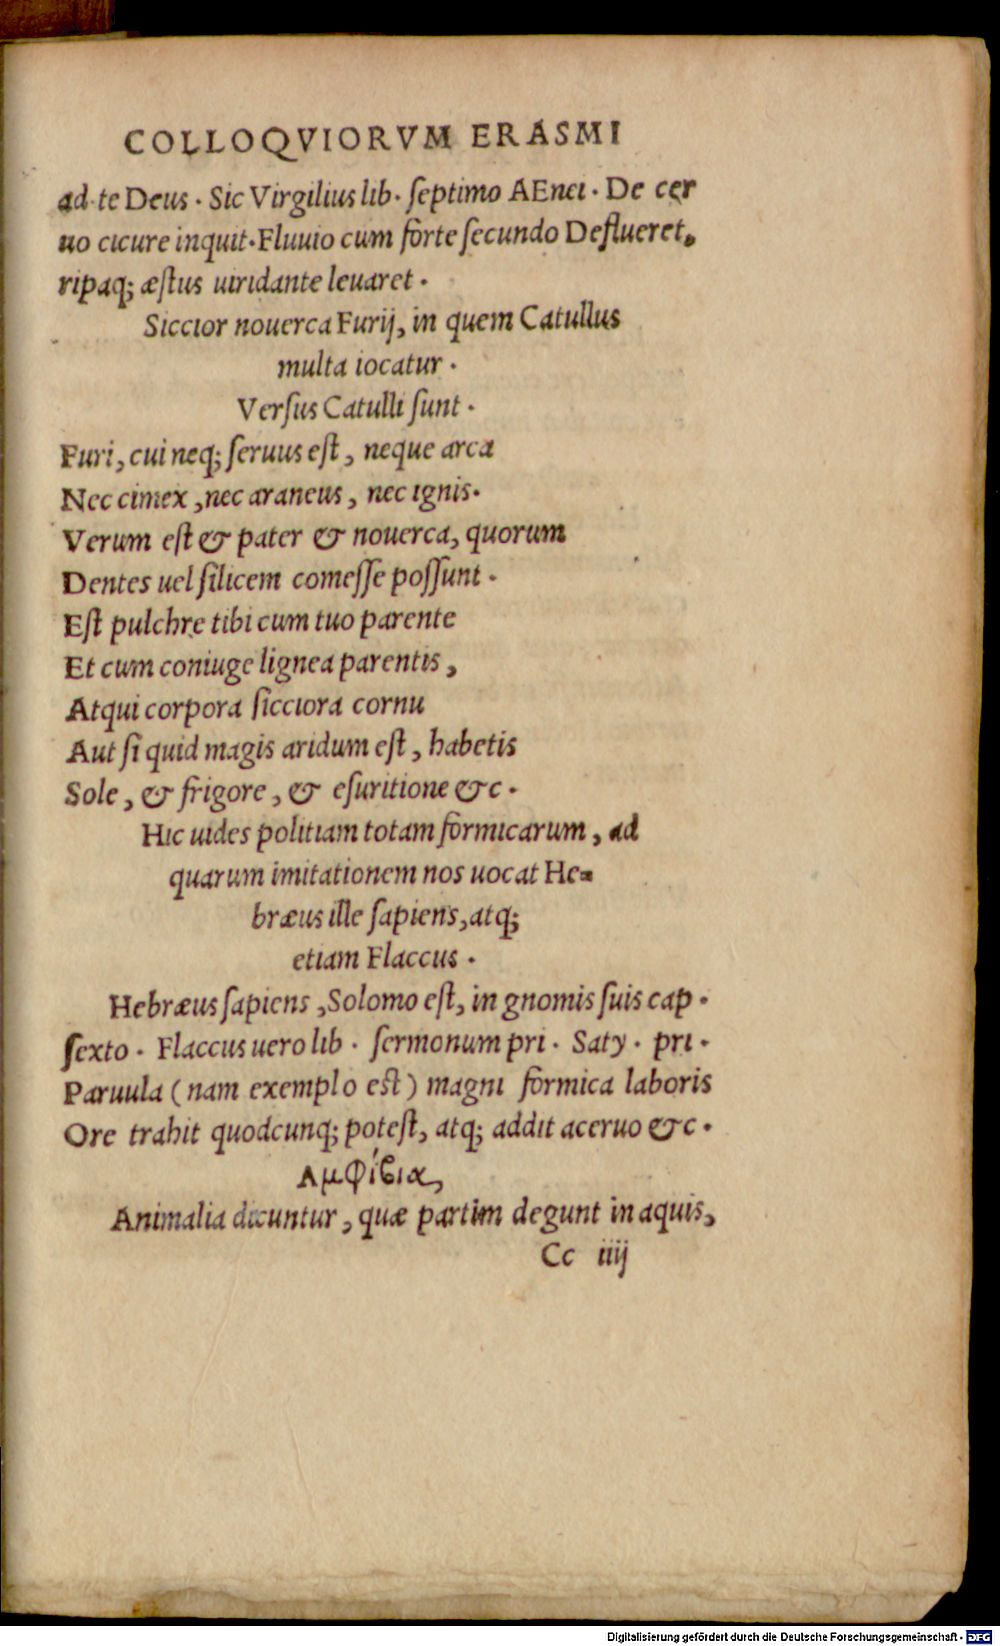 COLLOQVIORVM ERASMI
ad te Deus. Sic Virgilius lib. ſeptimo AEnei. De cer
uo cicure inquit. Fluuio cum forte ſecundo Deflueret,
ripaq; æſtus uiridante leuaret.
Siccior nouerca Furij, in quem Catullus
multa iocatur.
Verſus Catulli ſunt.
Furi, cui neq; ſeruus eſt, neque arca
Nec cimex, nec araneus, nec ignis.
Verum eſt & pater & nouerca, quorum
Dentes uel ſilicem comeſſe poſſunt.
Eſt pulchre tibi cum tuo parente
Et cum coniuge lignea parentis,
Atqui corpora ſicciora cornu
Aut ſi quid magis aridum eſt, habetis
Sole, & frigore, & eſuritione &c.
Hic uides politiam totam formicarum, ad
quarum imitationem nos uocat He-
bræus ille ſapiens, atq;
etiam Flaccus.
Hebræus ſapiens, Solomo eſt, in gnomis ſuis cap.
ſexto. Flaccus uero lib. ſermonum pri. Saty. pri.
Paruula (nam exemplo eſt) magni formica laboris
Ore trahit quodcunq; poteſt, atq; addit aceruo &c.
Αμφίβια,
Animalia dicuntur, quæ partim degunt in aquis,
Cc iiij
Digitalisierung gefördert durch die Deutsche Forschungsgemeinschaft - DFG